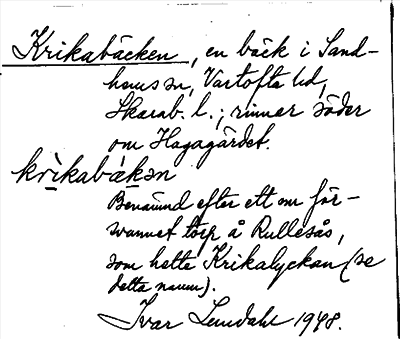 Krikabäcken, en bäck i Sand-
hems sn, Vartofta hd,
Skarab. l.; rinner söder
om Hagagärdet.
krìkabákən
Benämnd efter ett nu för-
svunnet torp å Rullesås,
som hette Krikalyckan (se
detta namn).
Ivar Lundahl 1948.